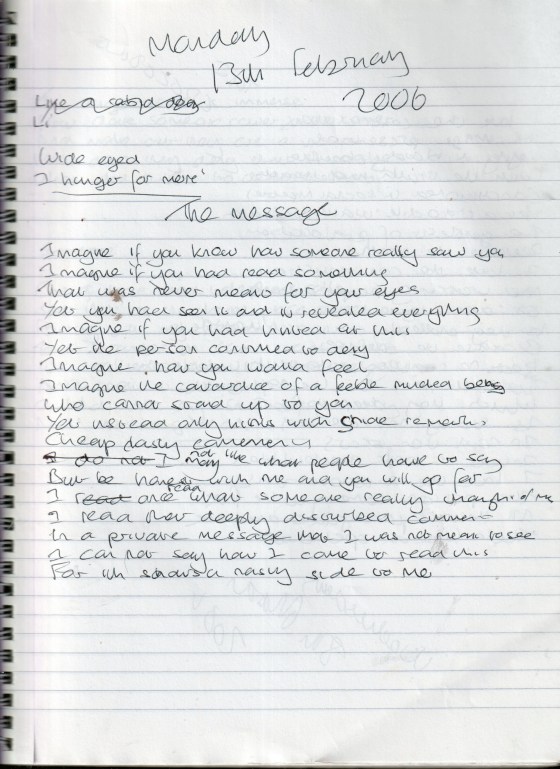 Monday
13th February
2006
Like a
Li
Wide eyed
I hunger for more'
The message
Imagine if you know how someone really saw you
Imagine if you had read something
That was never meant for your eyes
Yet you had seen it and it revealed everything
Imagine if you had hinted at this
Yet the person continued to deny
Imagine how you would feel
Imagine the cowardice of a feeble minded being
Who cannot stand up to you
Yet instead only hints with snide remarks
Cheap nasty
I do not I may not like what people have to say
But be honest with me and you will go far
I read once read what someone really thought of me
I read that deeply disturbed comment
In a private message that I was not meant to see
I can not say how I came to read this
For it shows a nasty side to me